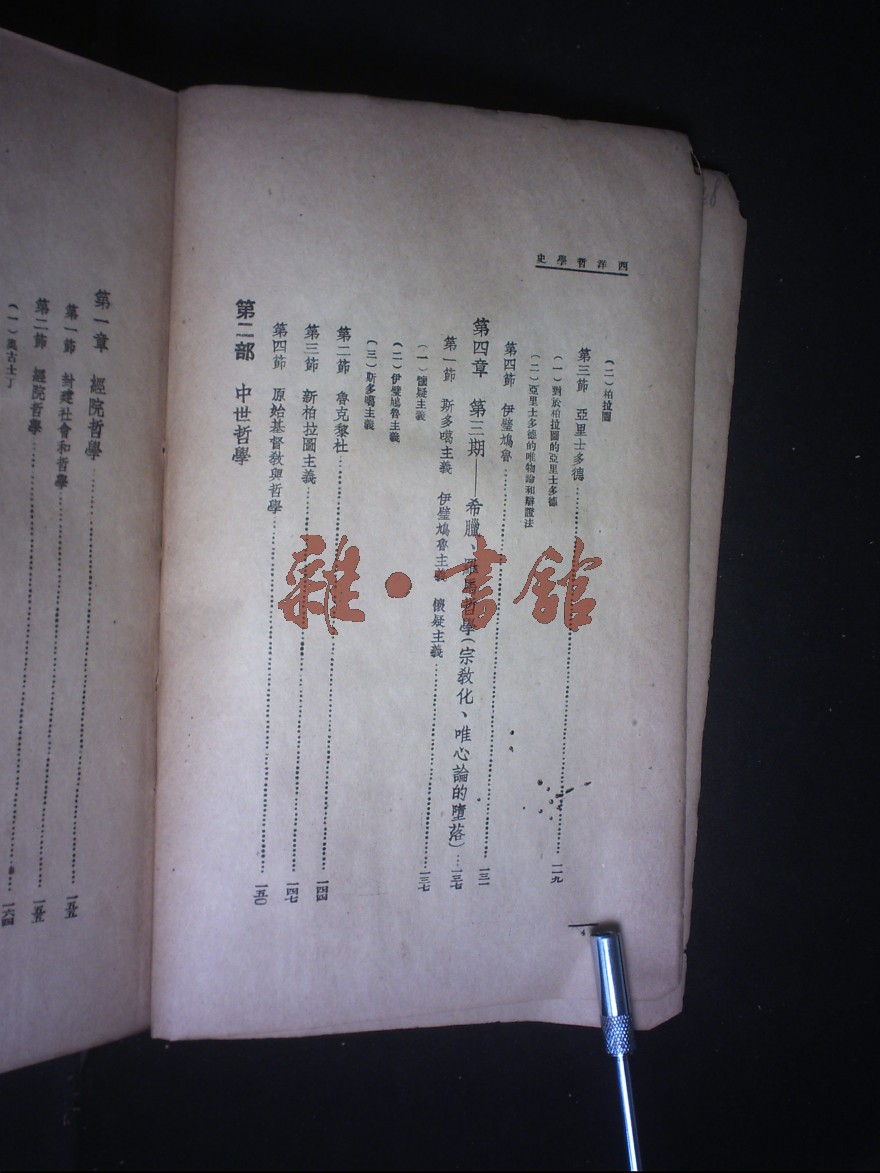 西洋哲學史
(二)柏拉圖
第三節 亞里士多德……一一九
(一)對於柏拉圖的亞里士多德
(二)亞里士多德的唯物論和辯證法
第四節 伊璧鳩魯……一三一
第四章 第三期——希臘、羅馬哲學(宗教化、唯心論的墮落)……一三七
第一節 斯多噶主義 伊璧鳩魯主義 懷疑主義……一三七
(一)懷疑主義
(二)伊璧鳩魯主義
(三)斯多噶主義
第二節 魯克黎杜……一四四
第三節 新柏拉圖主義……一四七
第四節 原始基督教與哲學……一五〇
第二部 中世哲學
第一章 經院哲學……一五五
第一節 封建社會和哲學……一五五
第二節 經院哲學……一六四
(一)奧古士丁
雜·書館